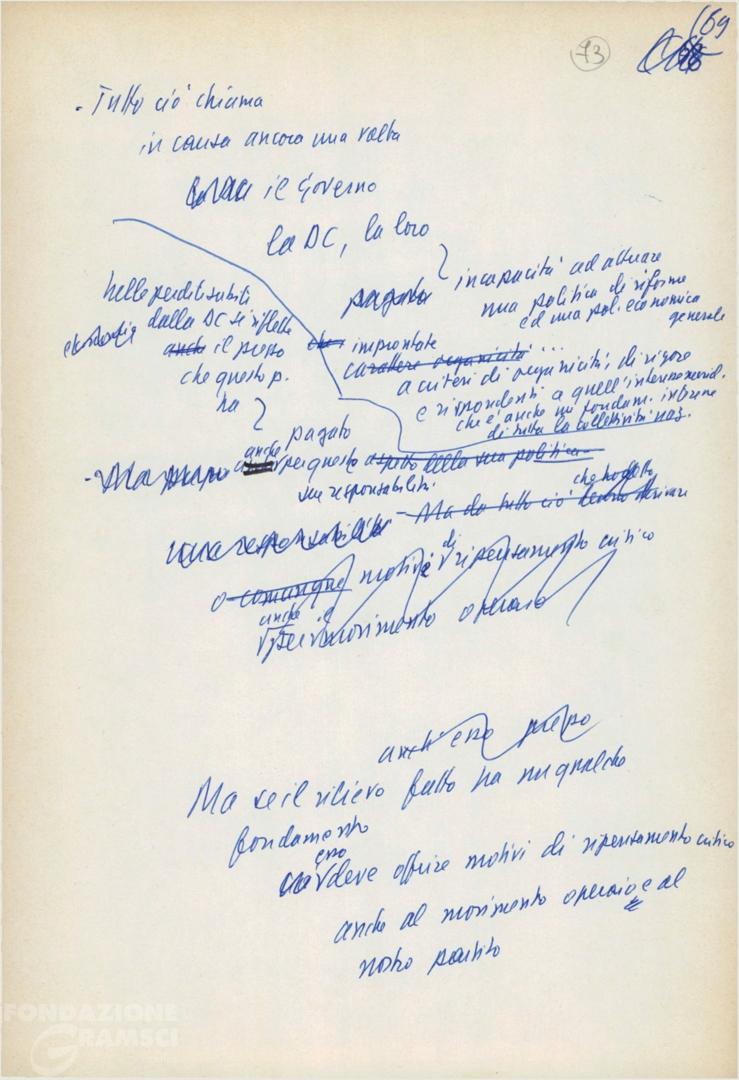 73
69
- Tutto ciò chiama
in causa ancora una volta
il Governo
la DC, la loro
incapacità ad attuare
una politica di riforme
ed una pol. economica
generale
pagato
improntate
carattere organicità ...
a criteri di organicità, di rigore
e rispondenti a quell'interesse merid.
che è anche un fondam. interesse
di tutta la collettività naz.
nelle perdite subite
dalla DC si riflette
anche il prezzo
che questo p.
ha
anche pagato
- Ma per questo aspetto della sua politica
sue responsabilità
una responsabilità - Ma da tutto ciò
o comunque motivi di ripensamento critico
anche il
per movimento operaio
anch'esso prezzo
Ma se il rilievo fatto ha un qualche
fondamento
esso
deve offrire motivi di ripensamento critico
anche al movimento operaio e al
nostro partito
FONDAZIONE
GRAMSCI